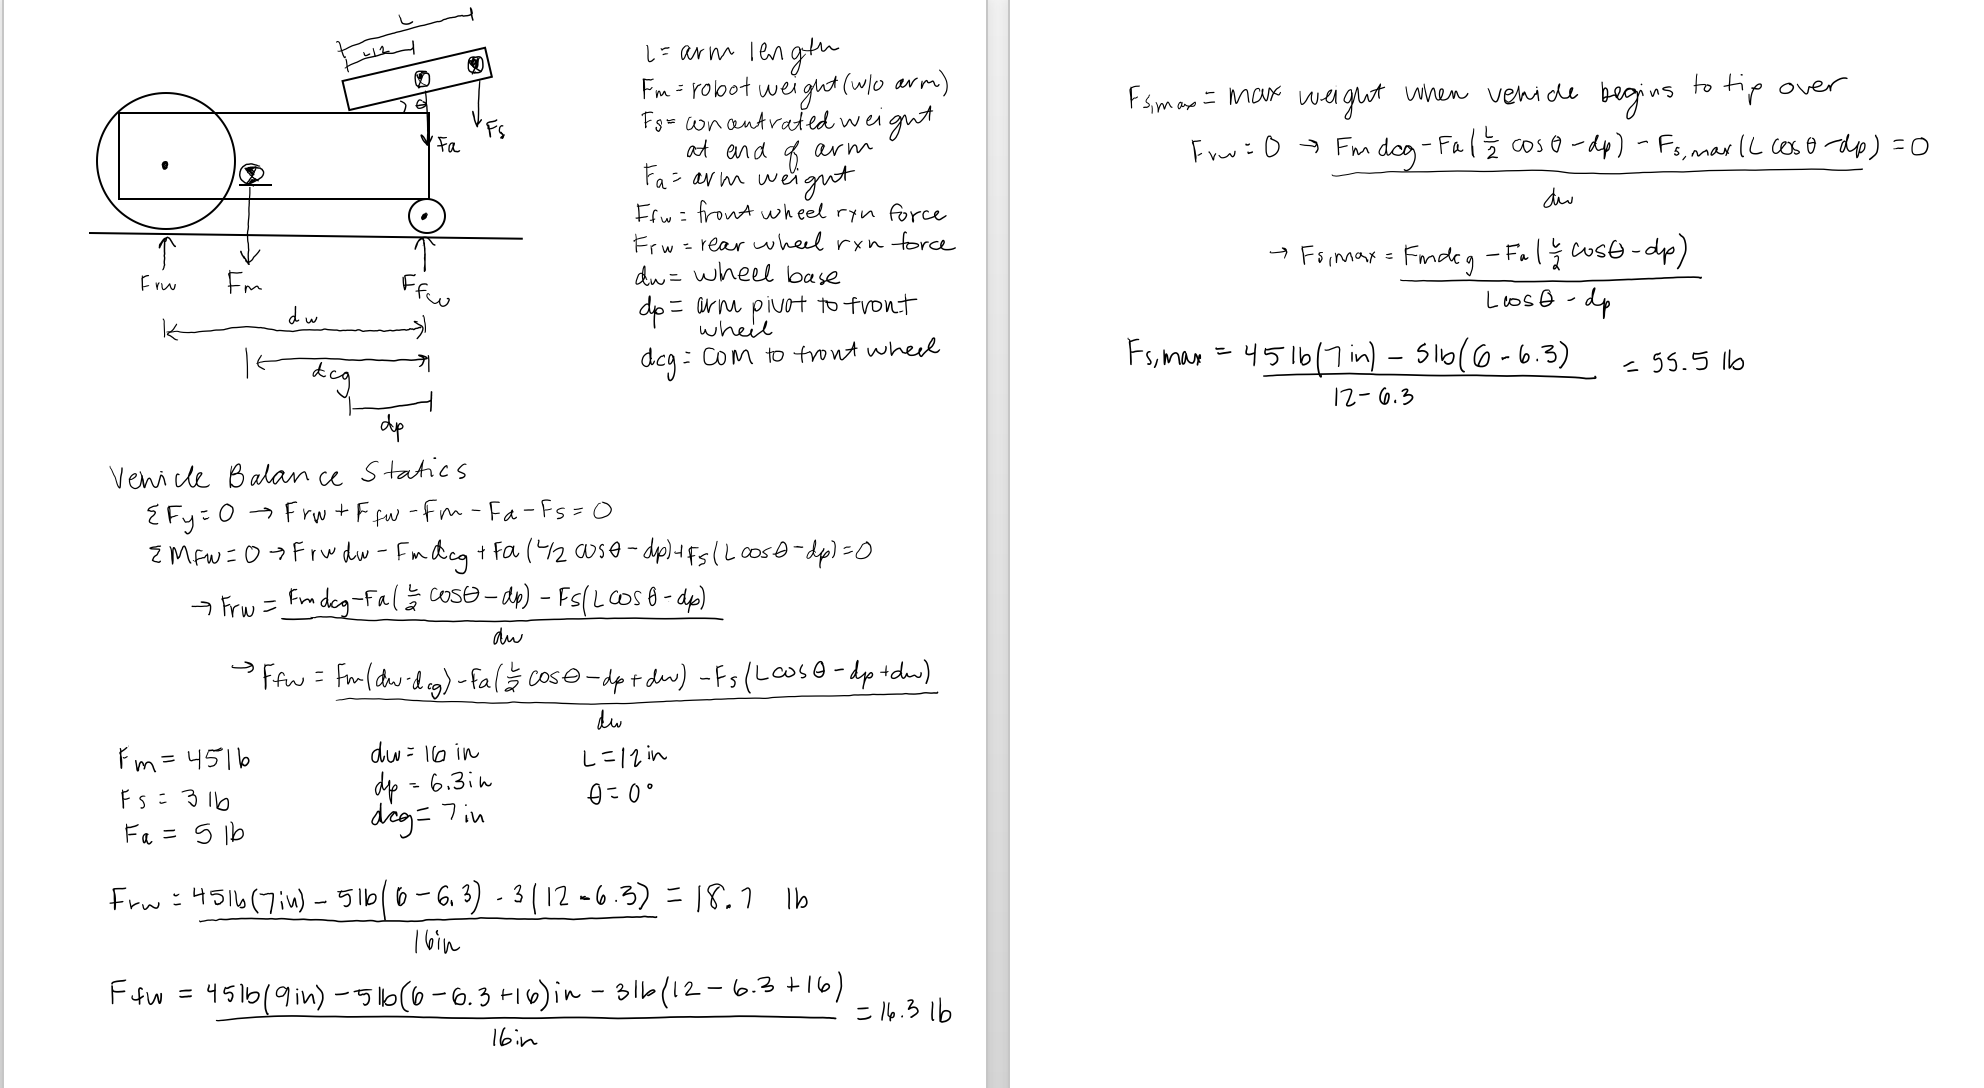 L
L/2
θ
Fa
Fs
Frw
Fm
Ffw
dw
dcg
dp
L = arm length
Fm = robot weight (w/o arm)
Fs = concentrated weight
at end of arm
Fa = arm weight
Ffw = front wheel rxn force
Frw = rear wheel rxn force
dw = wheel base
dp = arm pivot to front
wheel
dcg = COM to front wheel
Vehicle Balance Statics
ΣFy = 0 → Frw + Ffw - Fm - Fa - Fs = 0
ΣMfw = 0 → Frw dw - Fm dcg + Fa (L/2 cosθ - dp) + Fs (L cosθ - dp) = 0
→ Frw = Fm dcg - Fa (L/2 cosθ - dp) - Fs (L cosθ - dp)
dw
→ Ffw = Fm (dw - dcg) - Fa (L/2 cosθ - dp + dw) - Fs (L cosθ - dp + dw)
dw
Fm = 45 lb dw = 16 in L = 12 in
Fs = 3 lb dp = 6.3 in θ = 0°
Fa = 5 lb dcg = 7 in
Frw = 45 lb (7 in) - 5 lb (6 - 6.3) - 3 (12 - 6.3) = 18.7 lb
16 in
Ffw = 45 lb (9 in) - 5 lb (6 - 6.3 + 16) in - 3 lb (12 - 6.3 + 16) = 16.3 lb
16 in
Fs,max = max weight when vehicle begins to tip over
Frw = 0 → Fm dcg - Fa (L/2 cosθ - dp) - Fs,max (L cosθ - dp) = 0
dw
→ Fs,max = Fm dcg - Fa (L/2 cosθ - dp)
L cosθ - dp
Fs,max = 45 lb (7 in) - 5 lb (6 - 6.3) = 55.5 lb
12 - 6.3